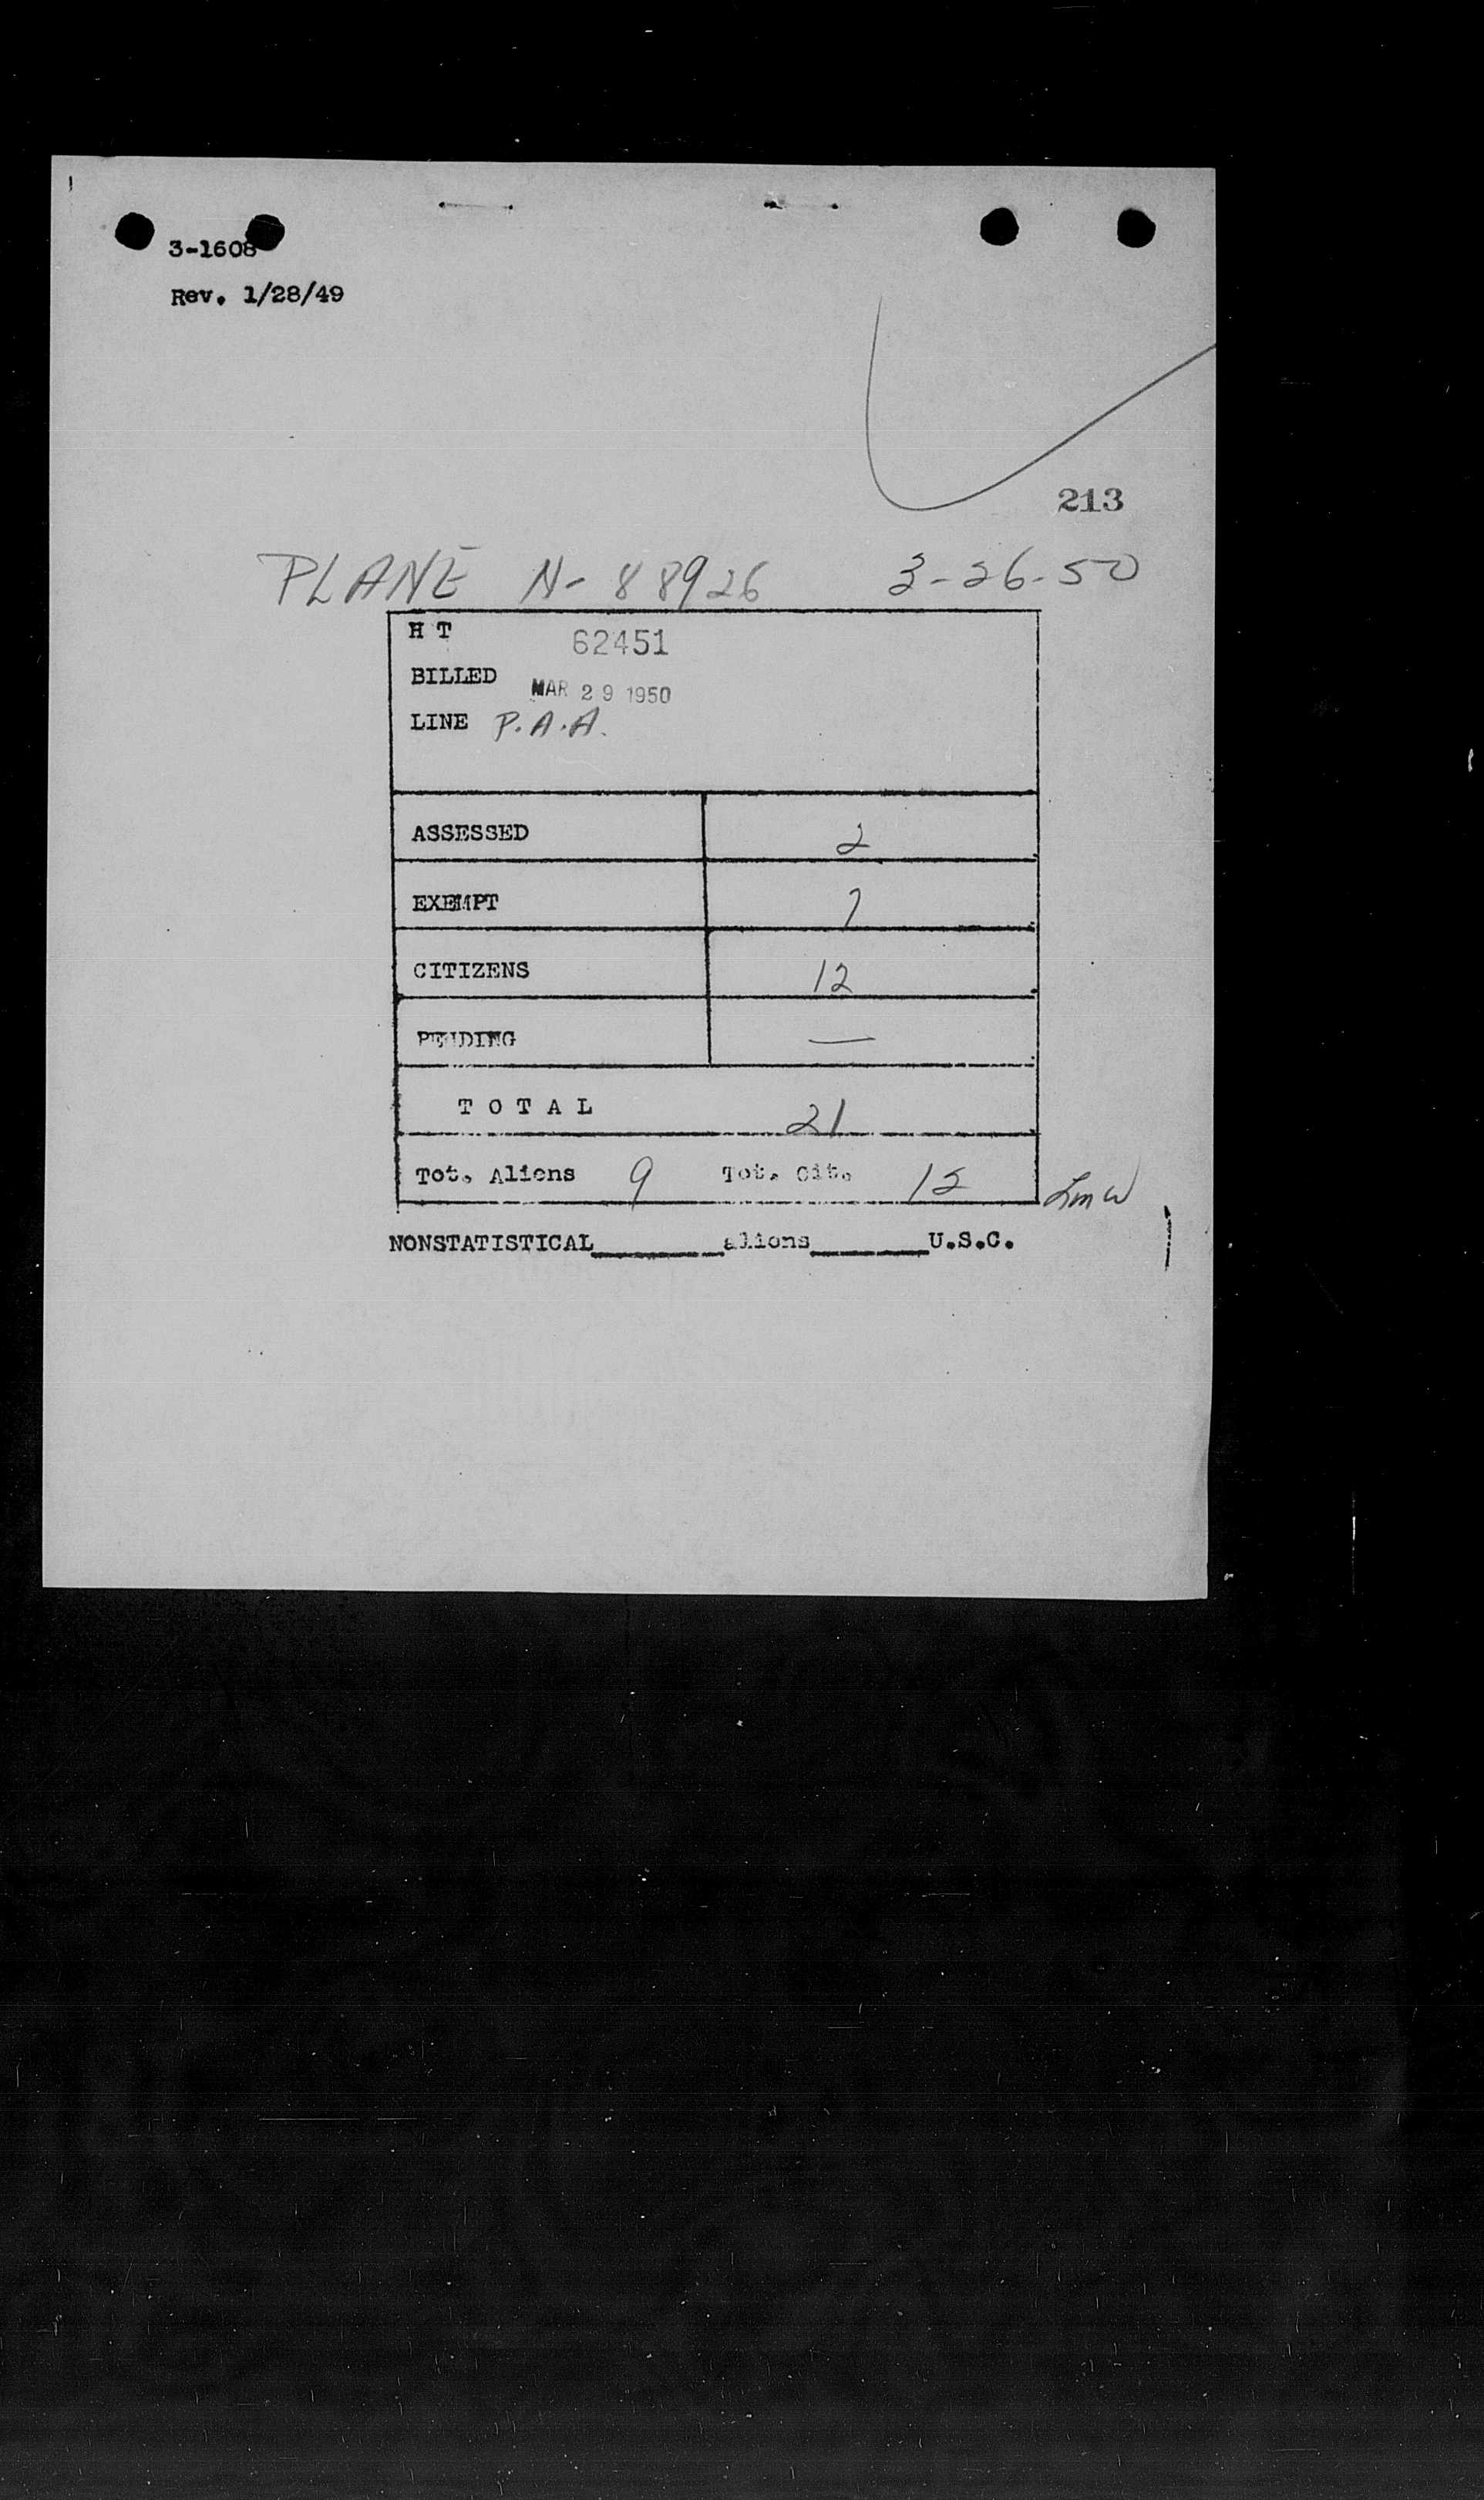 3-1608
Rev. 1/28/49
213
PLANE N- 88926 3-26-50
H T 62451
BILLED MAR 29 1950
LINE P.A.A.
ASSESSED 2
EXEMPT 7
CITIZENS 12
PENDING —
T O T A L 21
Tot. Aliens 9 Tot. Cit. 12 LmW
NONSTATISTICAL________aliens_______U.S.C.